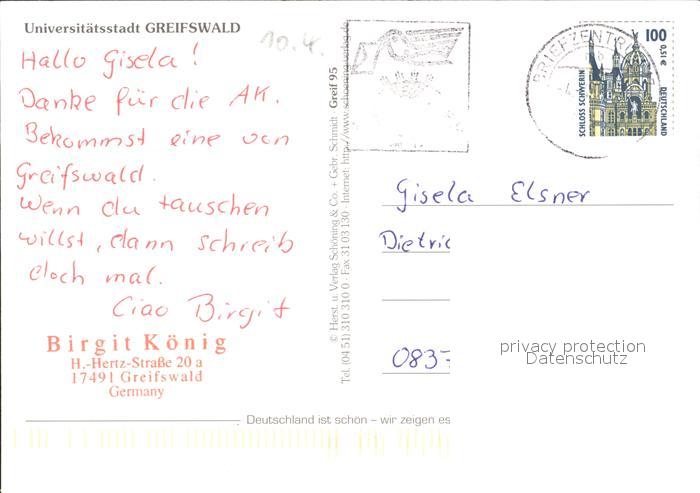 Universitätsstadt GREIFSWALD
10.4.
Hallo Gisela!
Danke für die AK.
Bekommst eine von
Greifswald.
Wenn du tauschen
willst, dann schreib
doch mal.
Ciao Birgit
Birgit König
H.-Hertz-Straße 20 a
17491 Greifswald
Germany
Deutschland ist schön – wir zeigen es
© Herst. u. Verlag Schöning & Co. + Gebr. Schmidt Greif 95
Tel. (04 51) 310 310 0 · Fax 31 03 130 · Internet: http://www.schoening-verlag.de
BRIEFZENTR
100
0,51€
SCHLOSS SCHWERIN
DEUTSCHLAND
Gisela Elsner
Dietric
0837
privacy protection
Datenschutz